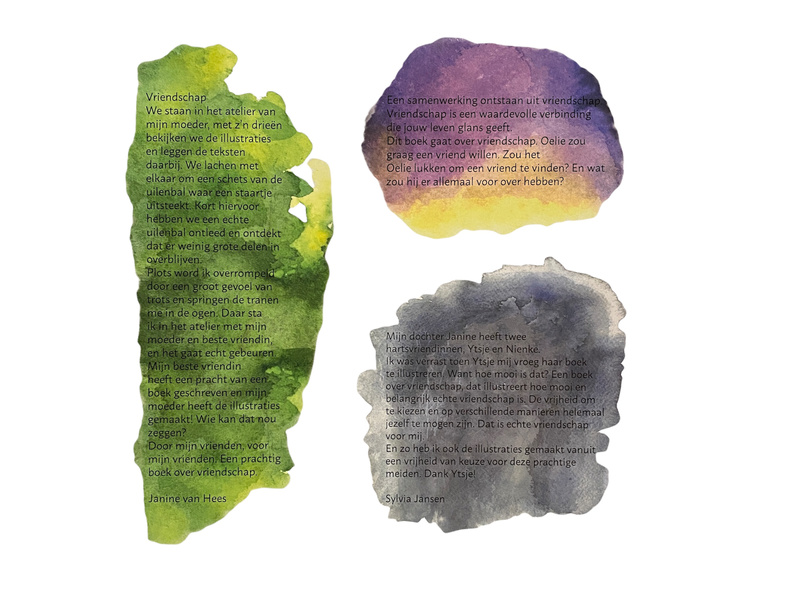 Vriendschap
We staan in het atelier van
mijn moeder, met z'n drieën
bekijken we de illustraties
en leggen de teksten
daarbij. We lachen met
elkaar om een schets van de
uilenbal waar een staartje
uitsteekt. Kort hiervoor
hebben we een echte
uilenbal ontleed en ontdekt
dat er weinig grote delen in
overblijven.
Plots word ik overrompeld
door een groot gevoel van
trots en springen de tranen
me in de ogen. Daar sta
ik in het atelier met mijn
moeder en beste vriendin,
en het gaat echt gebeuren
Mijn beste vriendin
heeft een pracht van een
boek geschreven en mijn
moeder heeft de illustraties
gemaakt! Wie kan dat nou
zeggen?
Door mijn vrienden, voor
mijn vrienden. Een prachtig
boek over vriendschap
Janine van Hees
Een samenwerking ontstaan uit vriendschap.
Vriendschap is een waardevolle verbinding
die jouw leven glans geeft.
Dit boek gaat over vriendschap. Oelie zou
graag een vriend willen. Zou het
Oelie lukken om een vriend te vinden? En wat
zou hij er allemaal voor over hebben?
Mijn dochter Janine heeft twee
hartsvriendinnen, Ytsje en Nienke.
Ik was verrast toen Ytsje mij vroeg haar boek
te illustreren. Want hoe mooi is dat? Een boek
over vriendschap, dat illustreert hoe mooi en
belangrijk echte vriendschap is. De vrijheid om
te kiezen en op verschillende manieren helemaal
jezelf te mogen zijn. Dat is echte vriendschap
voor mij.
En zo heb ik ook de illustraties gemaakt vanuit
een vrijheid van keuze voor deze prachtige
meiden. Dank Ytsje!
Sylvia Jansen